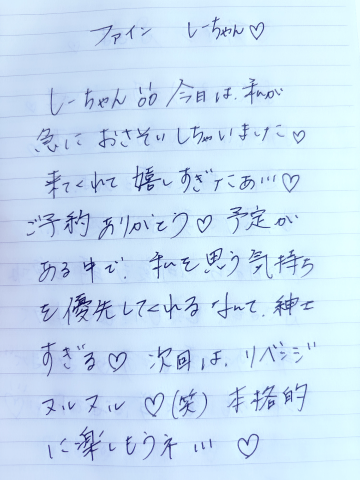 ファイン しーちゃん♡
しーちゃん 今日は、私が
急に おさそいしちゃいました♡
来てくれて 嬉しすぎたあ!!!♡
ご予約 ありがとう♡ 予定が
ある中で、私を思う気持ち
を優先してくれるなんて、紳士
すぎる♡ 次回は、リベンジ
ヌルヌル ♡(笑) 本格的
に楽しもうネ!!! ♡